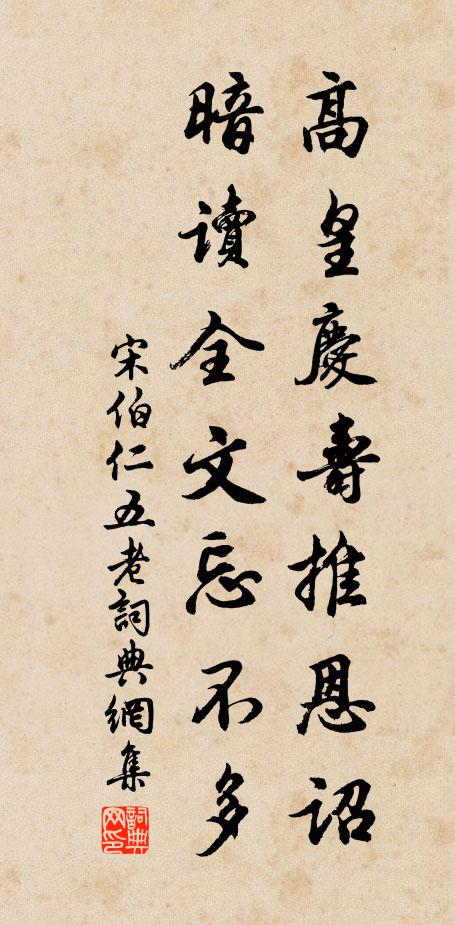 高皇慶壽推恩詔
暗读全文忘不多
宋伯仁五老詞典網集
詞典
网印